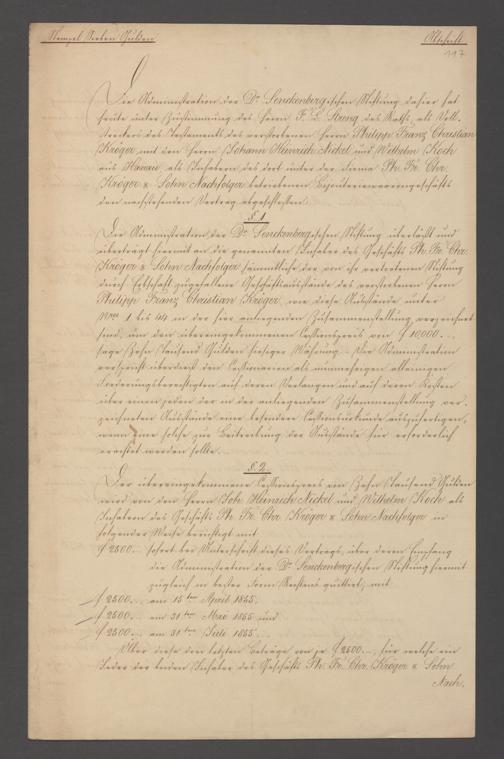 Stempel Sieben Gulden
Abschrift
117
Die Administration der Dr. Senckenbergischen Stiftung dahier hat
heute unter Zustimmung des Herrn F. E. des Raths, als Voll-
streckers des Testaments des verstorbenen Herrn Philipp Franz Christian
Kröger, mit den Herrn Johann Heinrich Nickel und Wilhelm Koch
aus Hanau, als Inhabern des dort unter der Firma Ph. Fr. Chr.
Kröger & Sohn Nachfolger betriebenen Bijouteriewaarengeschäfts
den nachstehenden Vertrag abgeschlossen:
§ 1.
Die Administration der Dr. Senckenbergischen Stiftung überläßt und
überträgt hiermit an die genannten Inhaber des Geschäfts Ph. Fr. Chr.
Kröger & Sohn Nachfolger sämmtliche der von ihr vertretenen Stiftung
durch Erbschaft zugefallene Geschäftsausstände des verstorbenen Herrn
Philipp Franz Christian Kröger, wie diese Ausstände unter
Nros. 1 bis 44 in der hier anliegenden Zusammenstellung verzeichnet
sind, um den übereingekommenen Cessionspreis von f 10,000.,
sage Zehn Tausend Gulden hiesiger Währung. Die Administration
verspricht überdies den Cessionaren als nunmehrigen alleinigen
Forderungsberechtigten auf deren Verlangen und auf deren Kosten
über einen jeden der in der anliegenden Zusammenstellung ver-
zeichneten Ausstände eine besondere Cessionsurkunde auszufertigen,
wenn eine solche zur Beitreibung der Ausstände für erforderlich
erachtet werden sollte.
§ 2.
Der übereingekommene Cessionspreis von Zehn Tausend Gulden
wird von den Herrn Joh. Heinrich Nickel und Wilhelm Koch als
Inhabern des Geschäfts Ph. Fr. Chr. Kröger & Sohn Nachfolger in
folgender Weise berichtigt mit
f 2500. sofort bei Unterschrift dieses Vertrags, über deren Empfang
die Administration der Dr. Senckenbergischen Stiftung hiermit
zugleich in bester Form Rechtens quittirt, mit
f 2500. am 15ten April 1855.
f 2500. am 31ten Mai 1855 und
f 2500. am 31ten Juli 1855.
Über diese drei letzten Beträge von je f 2500., für welche ein
Jeder der beiden Inhaber des Geschäfts Ph. Fr. Chr. Kröger & Sohn
Nach.